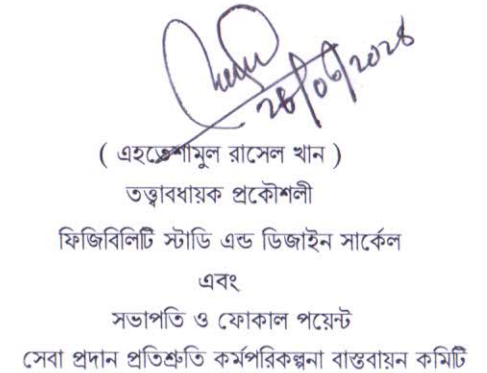 ২৪/০৬/২০২৪
( এহতেশামুল রাসেল খান )
তত্ত্বাবধায়ক প্রকৌশলী
ফিজিবিলিটি স্টাডি এন্ড ডিজাইন সার্কেল
এবং
সভাপতি ও ফোকাল পয়েন্ট
সেবা প্রদান প্রতিশ্রুতি কর্মপরিকল্পনা বাস্তবায়ন কমিটি